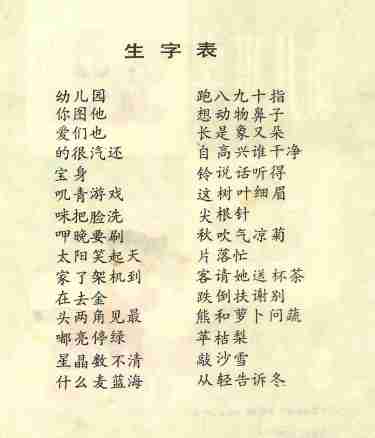 生字表
幼儿园
你图他
爱们也
的很汽还
宝身
叽青游戏
咪把脸洗
呷晚要刷
太阳笑起天
家了架机到
在去金
头两角见最
嘟亮停绿
星晶数不清
什么麦蓝海
跑八九十指
想动物鼻子
长是象又朵
自高兴谁干净
铃说话听得
这树叶细眉
尖根针
秋吹气凉菊
片落忙
客请她送杯茶
跌倒扶谢别
熊和萝卜问蔬
苹桔梨
敲沙雪
从轻告诉冬